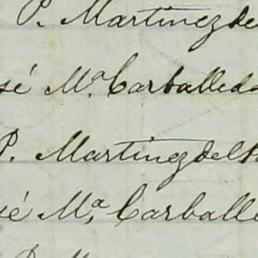 P. Martinez de
sé Mª Carballed
P. Martinez del
sé Mª Carballe